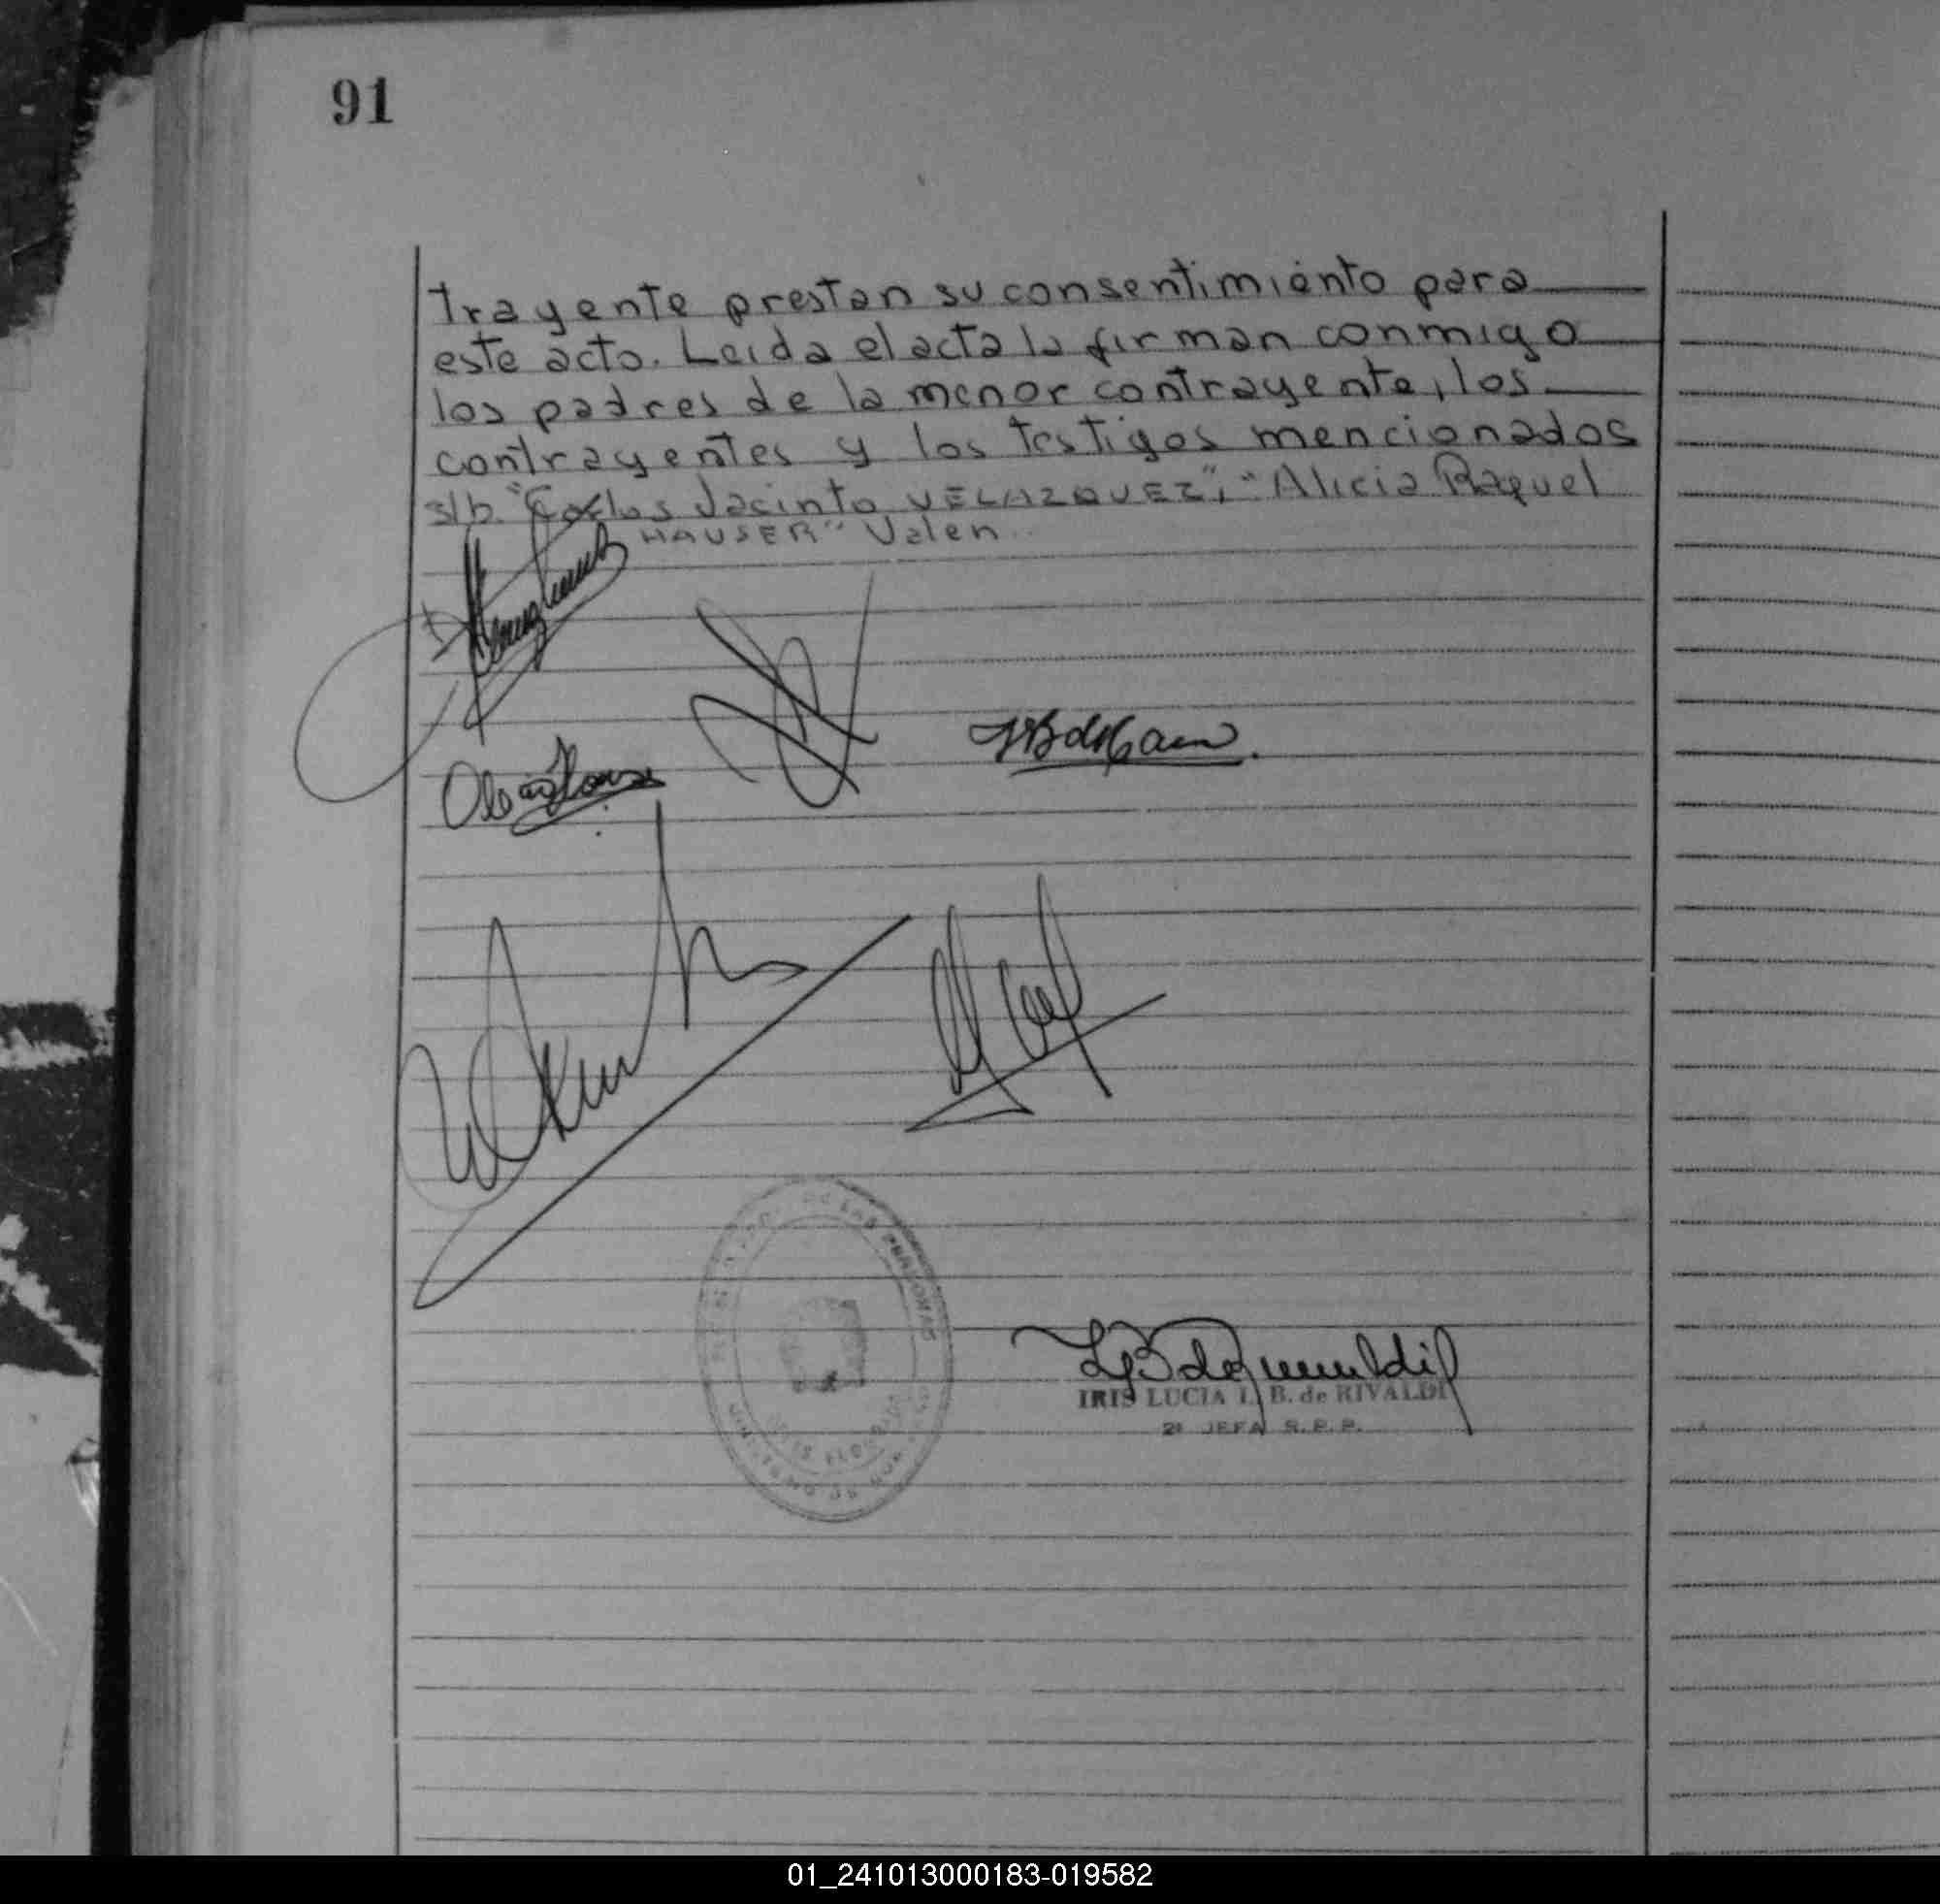 91
trayente prestan su consentimiento para
este acto. Leida el acta la firman conmigo
los padres de la menor contrayente, los
contrayentes y los testigos mencionados
s/b. "Carlos Jacinto VELAZQUEZ", "Alicia Raquel
HAUSER" Valen
DE LAS PERSONAS
IRIS LUCIA I. B. de RIVALDI
2ª JEFA R.P.P.
01_241013000183-019582